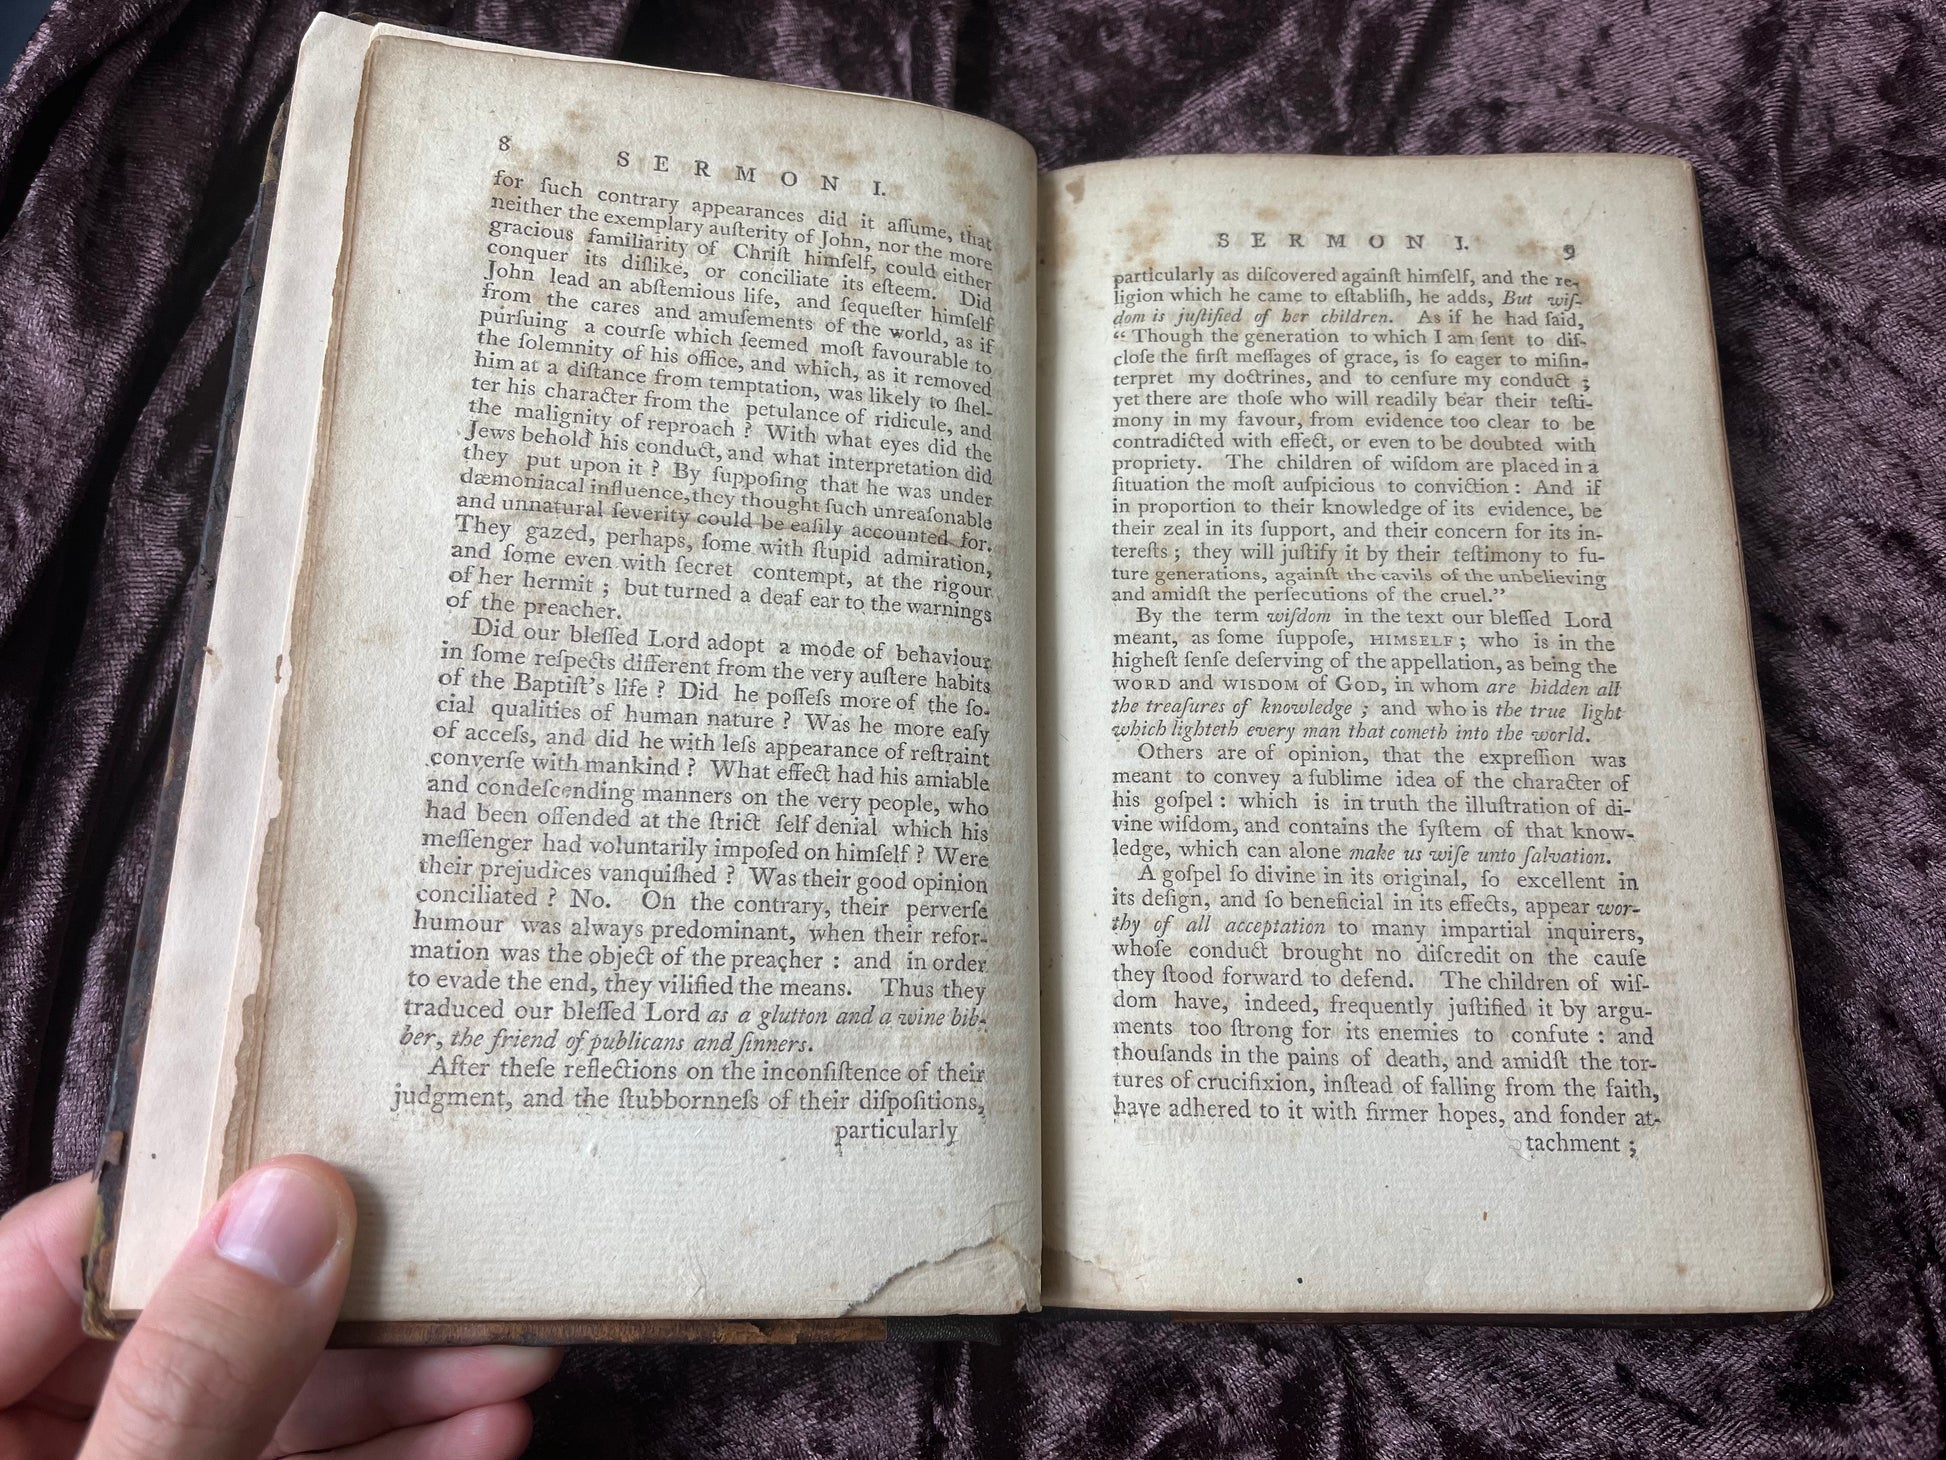 8
S E R M O N I.
for ſuch contrary appearances did it aſſume, that
neither the exemplary auſterity of John, nor the more
gracious familiarity of Chriſt himſelf, could either
conquer its diſlike, or conciliate its eſteem. Did
John lead an abſtemious life, and ſequeſter himſelf
from the cares and amuſements of the world, as if
purſuing a courſe which ſeemed moſt favourable to
the ſolemnity of his office, and which, as it removed
him at a diſtance from temptation, was likely to ſhel-
ter his character from the petulance of ridicule, and
the malignity of reproach ? With what eyes did the
Jews behold his conduct, and what interpretation did
they put upon it ? By ſuppoſing that he was under
dæmoniacal influence, they thought ſuch unreaſonable
and unnatural ſeverity could be eaſily accounted for.
They gazed, perhaps, ſome with ſtupid admiration,
and ſome even with ſecret contempt, at the rigour
of her hermit ; but turned a deaf ear to the warnings
of the preacher.
Did our bleſſed Lord adopt a mode of behaviour
in ſome reſpects different from the very auſtere habits
of the Baptiſt's life ? Did he poſſeſs more of the ſo-
cial qualities of human nature ? Was he more eaſy
of acceſs, and did he with leſs appearance of reſtraint
converſe with mankind ? What effect had his amiable
and condeſcending manners on the very people, who
had been offended at the ſtrict ſelf denial which his
meſſenger had voluntarily impoſed on himſelf ? Were
their prejudices vanquiſhed ? Was their good opinion
conciliated ? No. On the contrary, their perverſe
humour was always predominant, when their refor-
mation was the object of the preacher : and in order
to evade the end, they vilified the means. Thus they
traduced our bleſſed Lord as a glutton and a wine bib-
ber, the friend of publicans and ſinners.
After theſe reflections on the inconſiſtence of their
judgment, and the ſtubbornneſs of their diſpoſitions,
particularly
S E R M O N I.
9
particularly as diſcovered againſt himſelf, and the re-
ligion which he came to eſtabliſh, he adds, But wiſ-
dom is juſtified of her children. As if he had ſaid,
“ Though the generation to which I am ſent to diſ-
cloſe the firſt meſſages of grace, is ſo eager to miſin-
terpret my doctrines, and to cenſure my conduct ;
yet there are thoſe who will readily bear their teſti-
mony in my favour, from evidence too clear to be
contradicted with effect, or even to be doubted with
propriety. The children of wiſdom are placed in a
ſituation the moſt auſpicious to conviction : And if
in proportion to their knowledge of its evidence, be
their zeal in its ſupport, and their concern for its in-
tereſts ; they will juſtify it by their teſtimony to fu-
ture generations, againſt the cavils of the unbelieving
and amidſt the perſecutions of the cruel.”
By the term wiſdom in the text our bleſſed Lord
meant, as ſome ſuppoſe, HIMSELF ; who is in the
higheſt ſenſe deſerving of the appellation, as being the
WORD and WISDOM of GOD, in whom are hidden all
the treaſures of knowledge ; and who is the true light
which lighteth every man that cometh into the world.
Others are of opinion, that the expreſſion was
meant to convey a ſublime idea of the character of
his goſpel : which is in truth the illuſtration of di-
vine wiſdom, and contains the ſyſtem of that know-
ledge, which can alone make us wiſe unto ſalvation.
A goſpel ſo divine in its original, ſo excellent in
its deſign, and ſo beneficial in its effects, appear wor-
thy of all acceptation to many impartial inquirers,
whoſe conduct brought no diſcredit on the cauſe
they ſtood forward to defend. The children of wiſ-
dom have, indeed, frequently juſtified it by argu-
ments too ſtrong for its enemies to confute : and
thouſands in the pains of death, and amidſt the tor-
tures of crucifixion, inſtead of falling from the faith,
have adhered to it with firmer hopes, and fonder at-
tachment ;